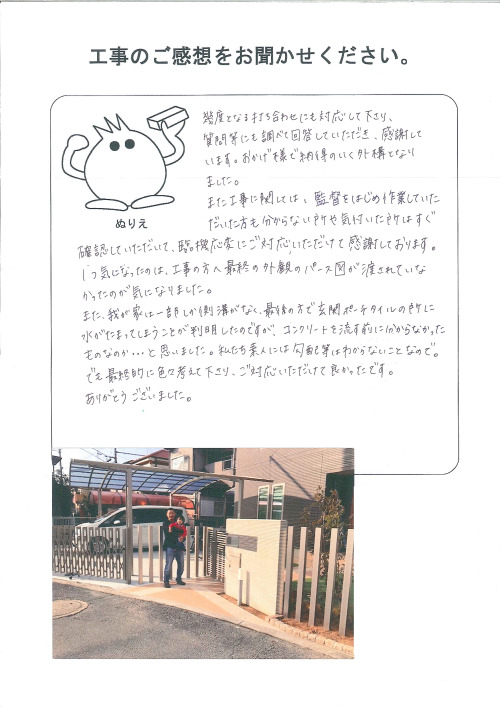 工事のご感想をお聞かせください。
ぬりえ
幾度となる打ち合わせにも対応して下さり、
質問等にも調べて回答していただき、感謝して
います。おかげ様で納得のいく外構となり
ました。
また工事に関しては、監督をはじめ作業していた
だいた方も分からない所や気付いた所はすぐ
確認していただいて、臨機応変にご対応いただけて感謝しております。
1つ気になったのは、工事の方へ最終の外観のパース図が渡されていな
かったのが気になりました。
また、我が家は一部しか側溝がなく、最後の方で玄関ポーチタイルの所に
水がたまってしまうことが判明したのですが、コンクリートを流す前に分からなかった
ものなのか…と思いました。私たち素人には勾配等はわからないことなので。
でも最終的に色々考えて下さり、ご対応いただけて良かったです。
ありがとうございました。